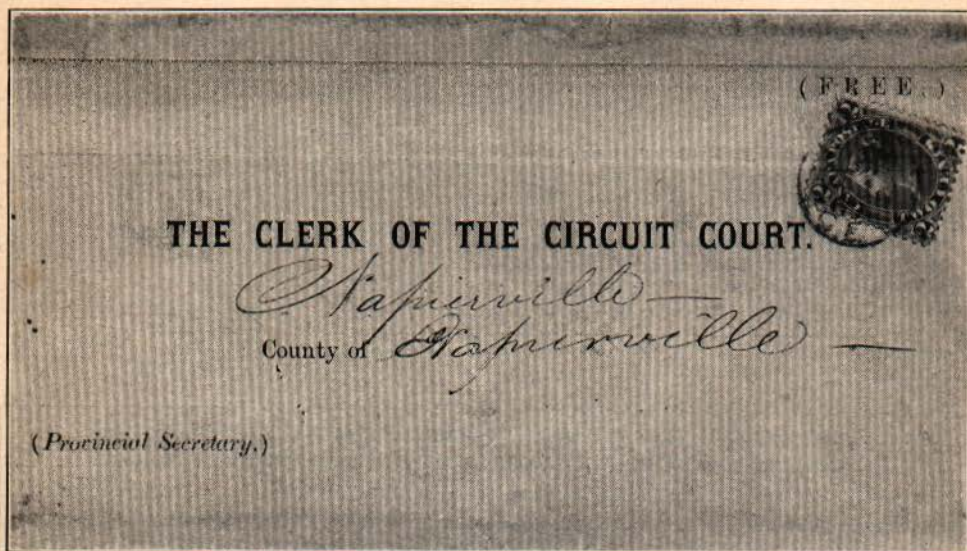 (FREE.)
THE CLERK OF THE CIRCUIT COURT.
Napierville —
County of Napierville —
(Provincial Secretary.)